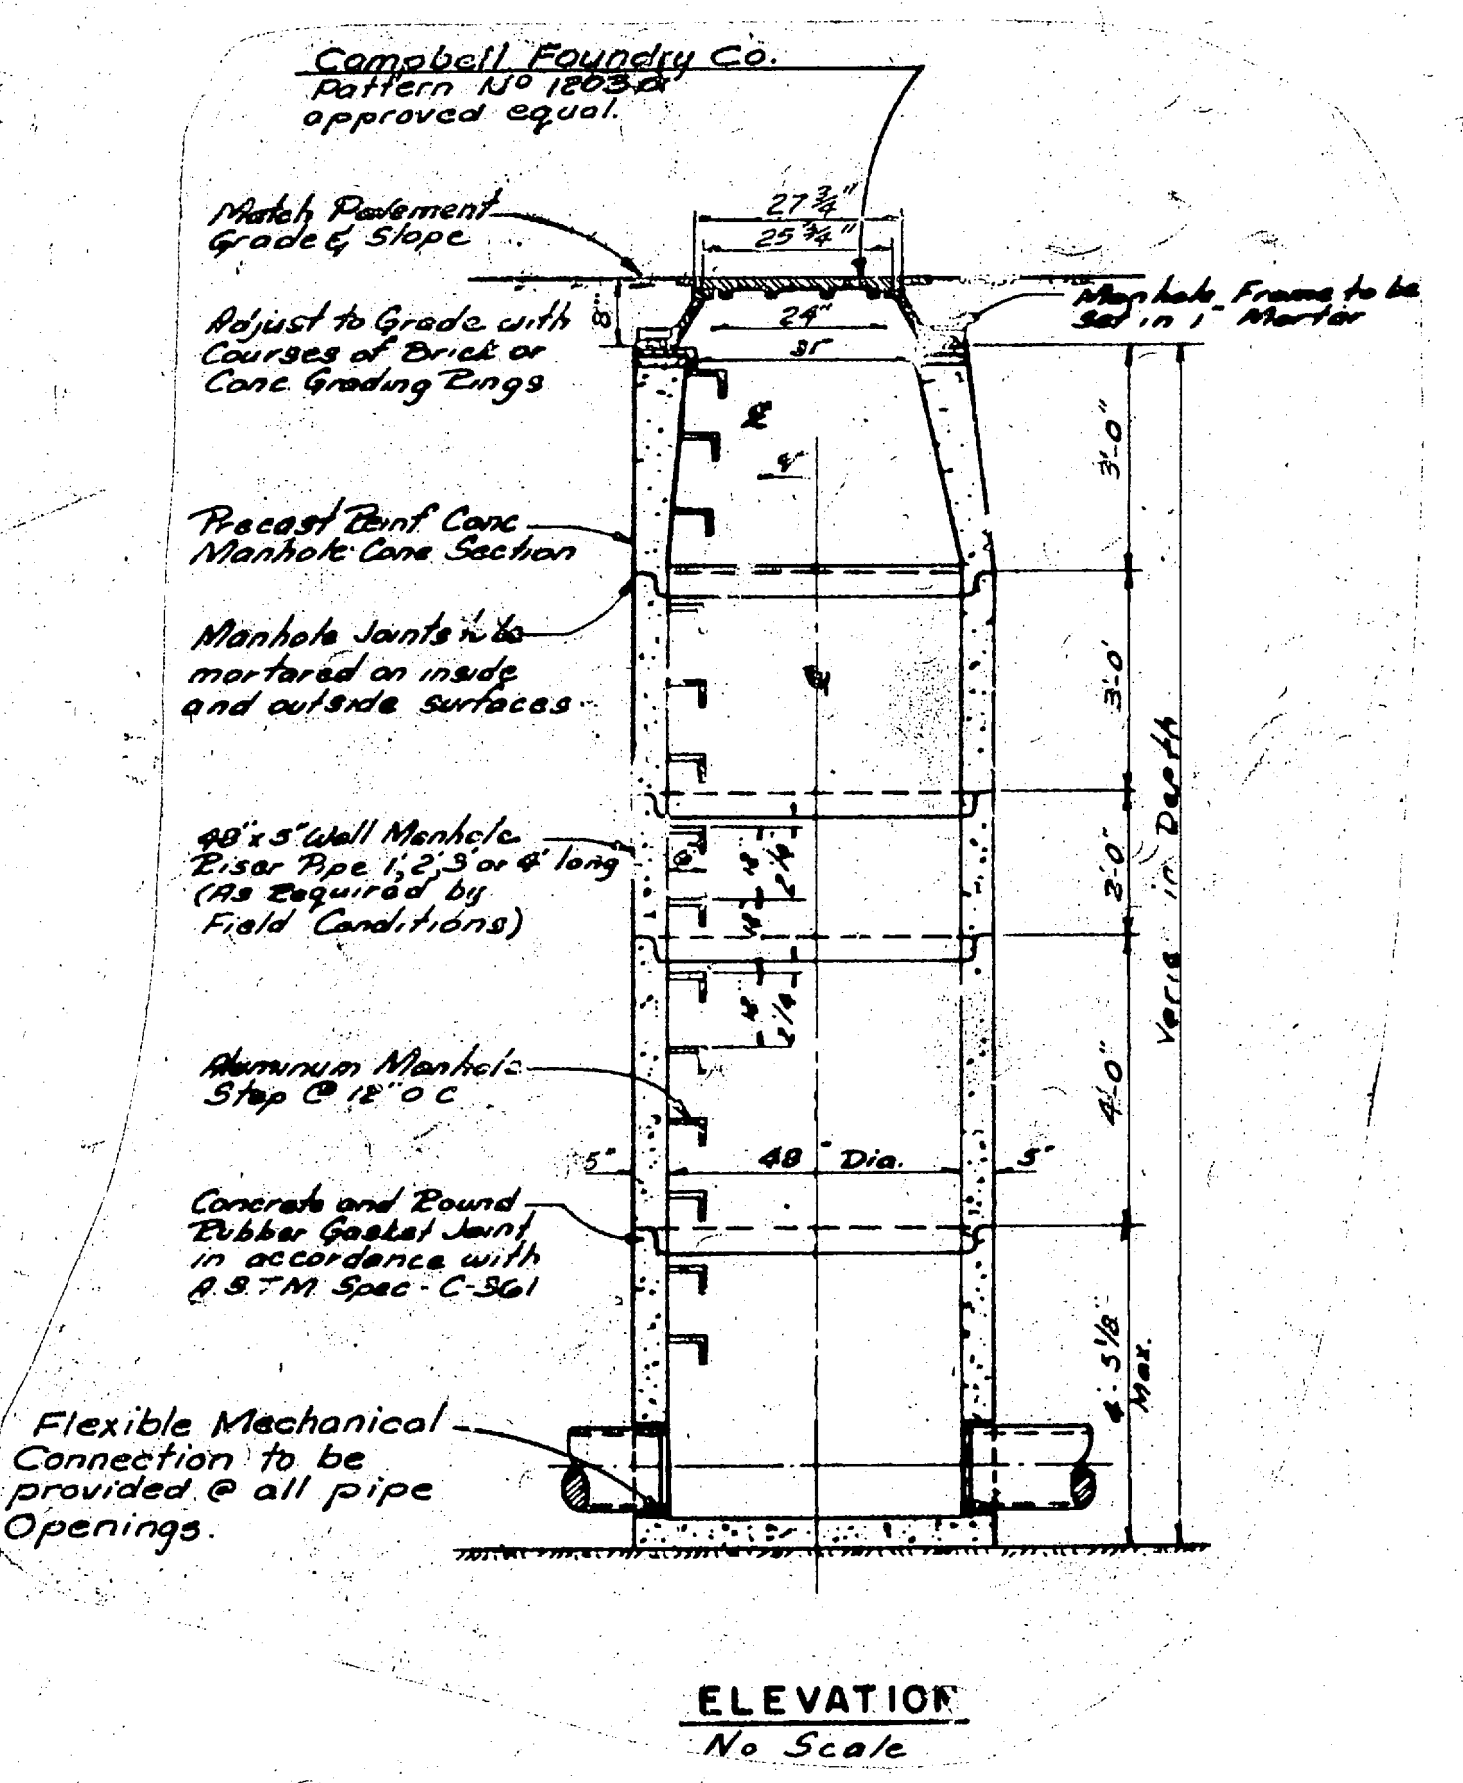 Campbell Foundry Co.
Pattern No 1203 or
approved equal.
Match Pavement
Grade & Slope
27 3/4"
25 3/4"
8"
24"
Manhole Frame to be
Set in 1" Mortar
Adjust to Grade with
Courses of Brick or
Conc. Grading Rings
3'-0"
Precast Reinf Conc
Manhole Cone Section
Manhole Joints to be
mortared on inside
and outside surfaces
3'-0"
48" x 5" Wall Manhole
Riser Pipe 1', 2', 3' or 4' long
(As Required by
Field Conditions)
2'-0"
Varie in Depth
Aluminum Manhole
Step @ 12" O C
4'-0"
5"
48" Dia.
5"
Concrete and Round
Rubber Gasket Joint
in accordance with
A.S.T.M. Spec - C-361
4'-5 1/8"
Max.
Flexible Mechanical
Connection to be
provided @ all pipe
Openings.
ELEVATION
No Scale